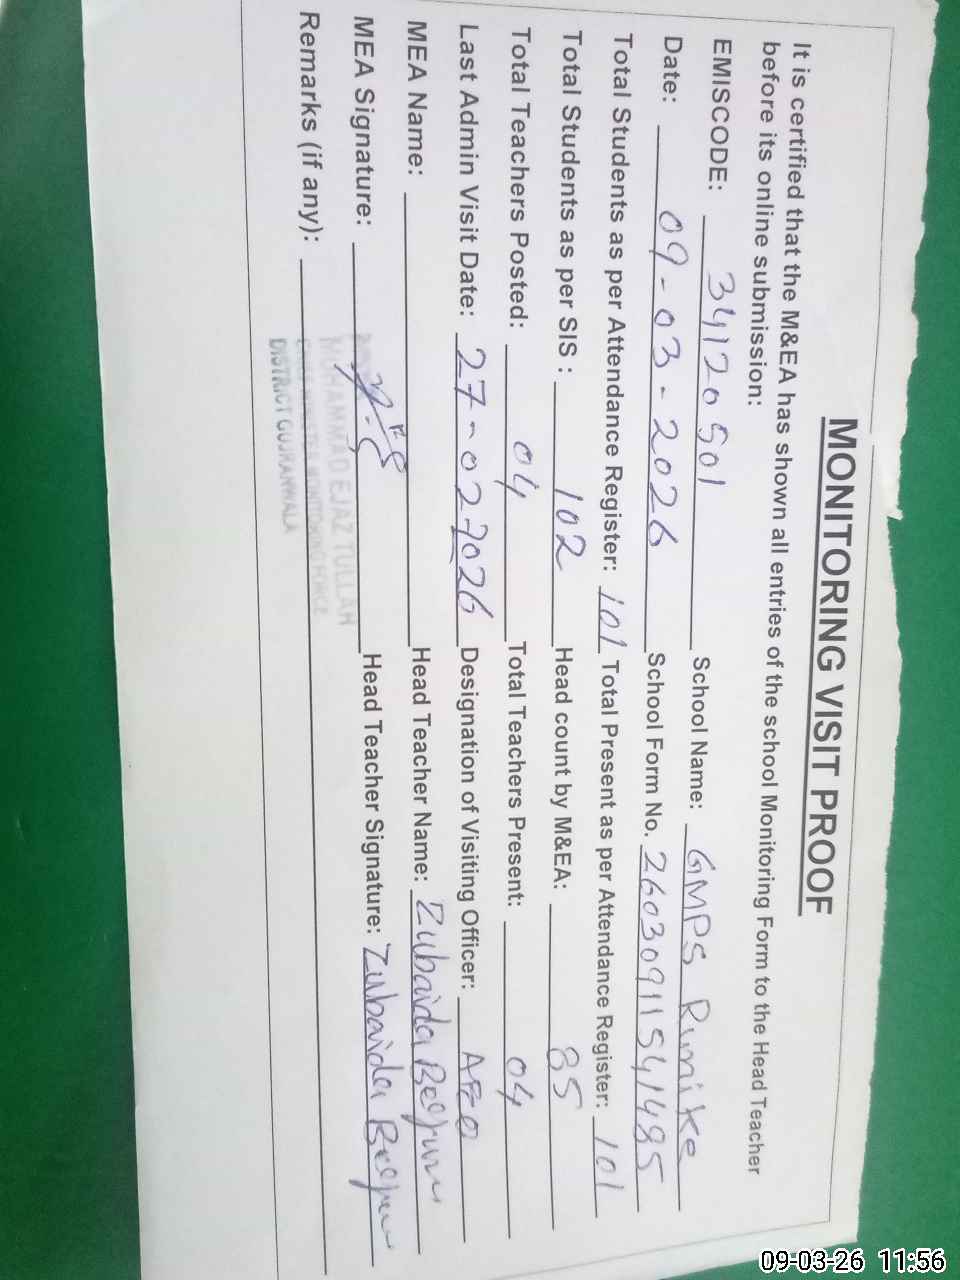 MONITORING VISIT PROOF
It is certified that the M&EA has shown all entries of the school Monitoring Form to the Head Teacher
before its online submission:
EMISCODE: 34120501 School Name: GMPS Rumike
Date: 09-03-2026 School Form No. 26030911541485
Total Students as per Attendance Register: 101 Total Present as per Attendance Register: 101
Total Students as per SIS : 102 Head count by M&EA: 85
Total Teachers Posted: 04 Total Teachers Present: 04
Last Admin Visit Date: 27-02-2026 Designation of Visiting Officer: AEO
MEA Name: Head Teacher Name: Zubaida Begum
MEA Signature: Head Teacher Signature: Zubaida Begum
Remarks (if any):
MUHAMMAD EJAZ TULLAH
CHIEF MINISTER MONITORING FORCE
DISTRICT GUJRANWALA
09-03-26 11:56